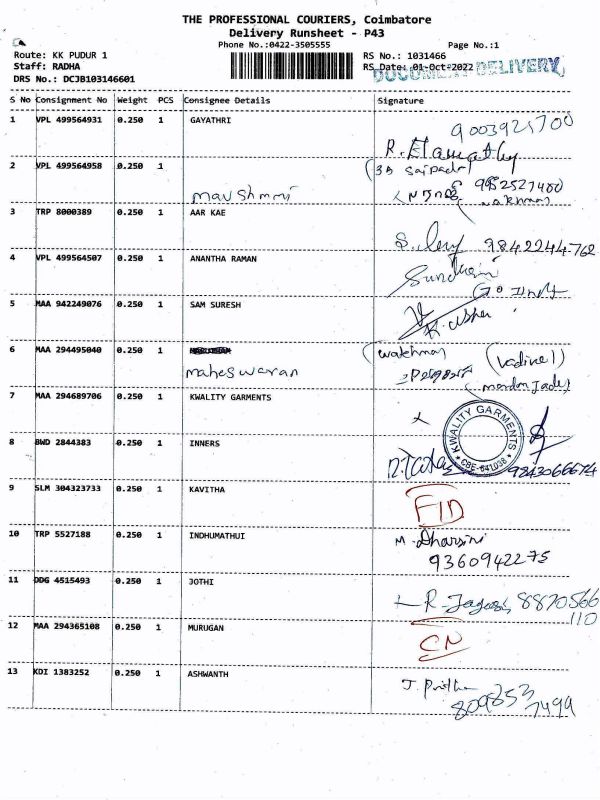 THE PROFESSIONAL COURIERS, Coimbatore
Delivery Runsheet - P43
Phone No.:0422-3505555 Page No.:1
Route: KK PUDUR 1 RS No.: 1031466
Staff: RADHA RS Date: 01-Oct-2022
DOCUMENT DELIVERY
DRS No.: DCJB103146601
S No Consignment No Weight PCS Consignee Details Signature
1 VPL 499564931 0.250 1 GAYATHRI 9003921700
2 VPL 499564958 0.250 1
3 TRP 8000389 0.250 1 AAR KAE
9842244762
4 VPL 499564507 0.250 1 ANANTHA RAMAN
5 MAA 942249076 0.250 1 SAM SURESH
6 MAA 294495040 0.250 1
maheswaran
7 MAA 294689706 0.250 1 KWALITY GARMENTS
KWALITY GARMENTS
CBE-641038
8 BWD 2844383 0.250 1 INNERS
9843066674
9 SLM 304323733 0.250 1 KAVITHA
10 TRP 5527188 0.250 1 INDHUMATHUI M. Dharsini
9360942275
11 DDG 4515493 0.250 1 JOTHI
8870566
110
12 MAA 294365108 0.250 1 MURUGAN
CN
13 KDI 1383252 0.250 1 ASHWANTH
809853
7499